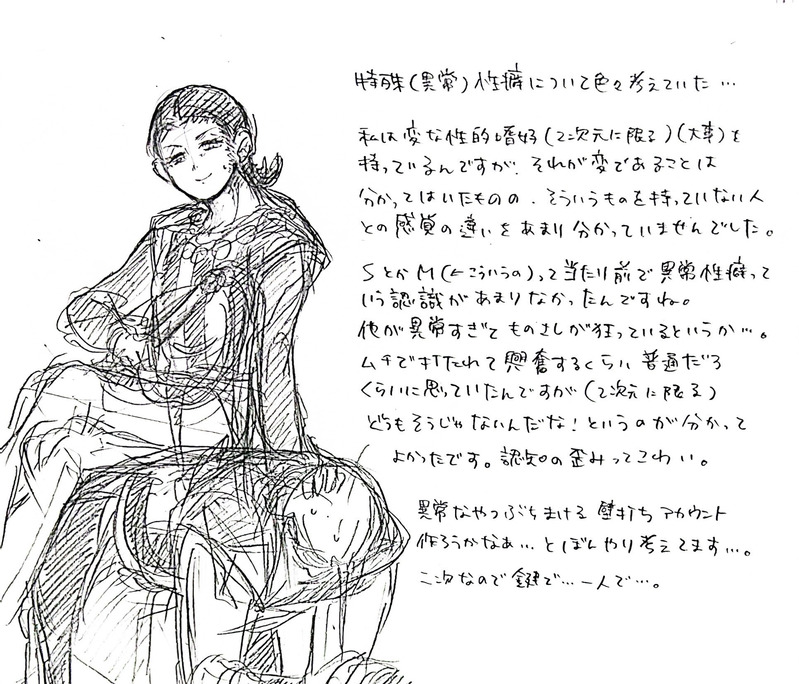 特殊(異常)性癖について色々考えていた…
私は変な性的嗜好(二次元に限る)(大事)を
持っているんですが、それが変であることは
分かってはいたものの、そういうものを持っていない人
との感覚の違いをあまり分かっていませんでした。
SとかM(←こういうの)って当たり前で異常性癖って
いう認識があまりなかったんですね。
他が異常すぎてものさしが狂っているというか…。
ムチで打たれて興奮するくらい普通だろ
くらいに思っていたんですが(二次元に限る)
どうもそうじゃないんだな!というのが分かって
よかったです。認知の歪みってこわい。
異常なやつぶちまける壁打ちアカウント
作ろうかなぁ…とぼんやり考えてます…。
二次なので鍵で…一人で…。